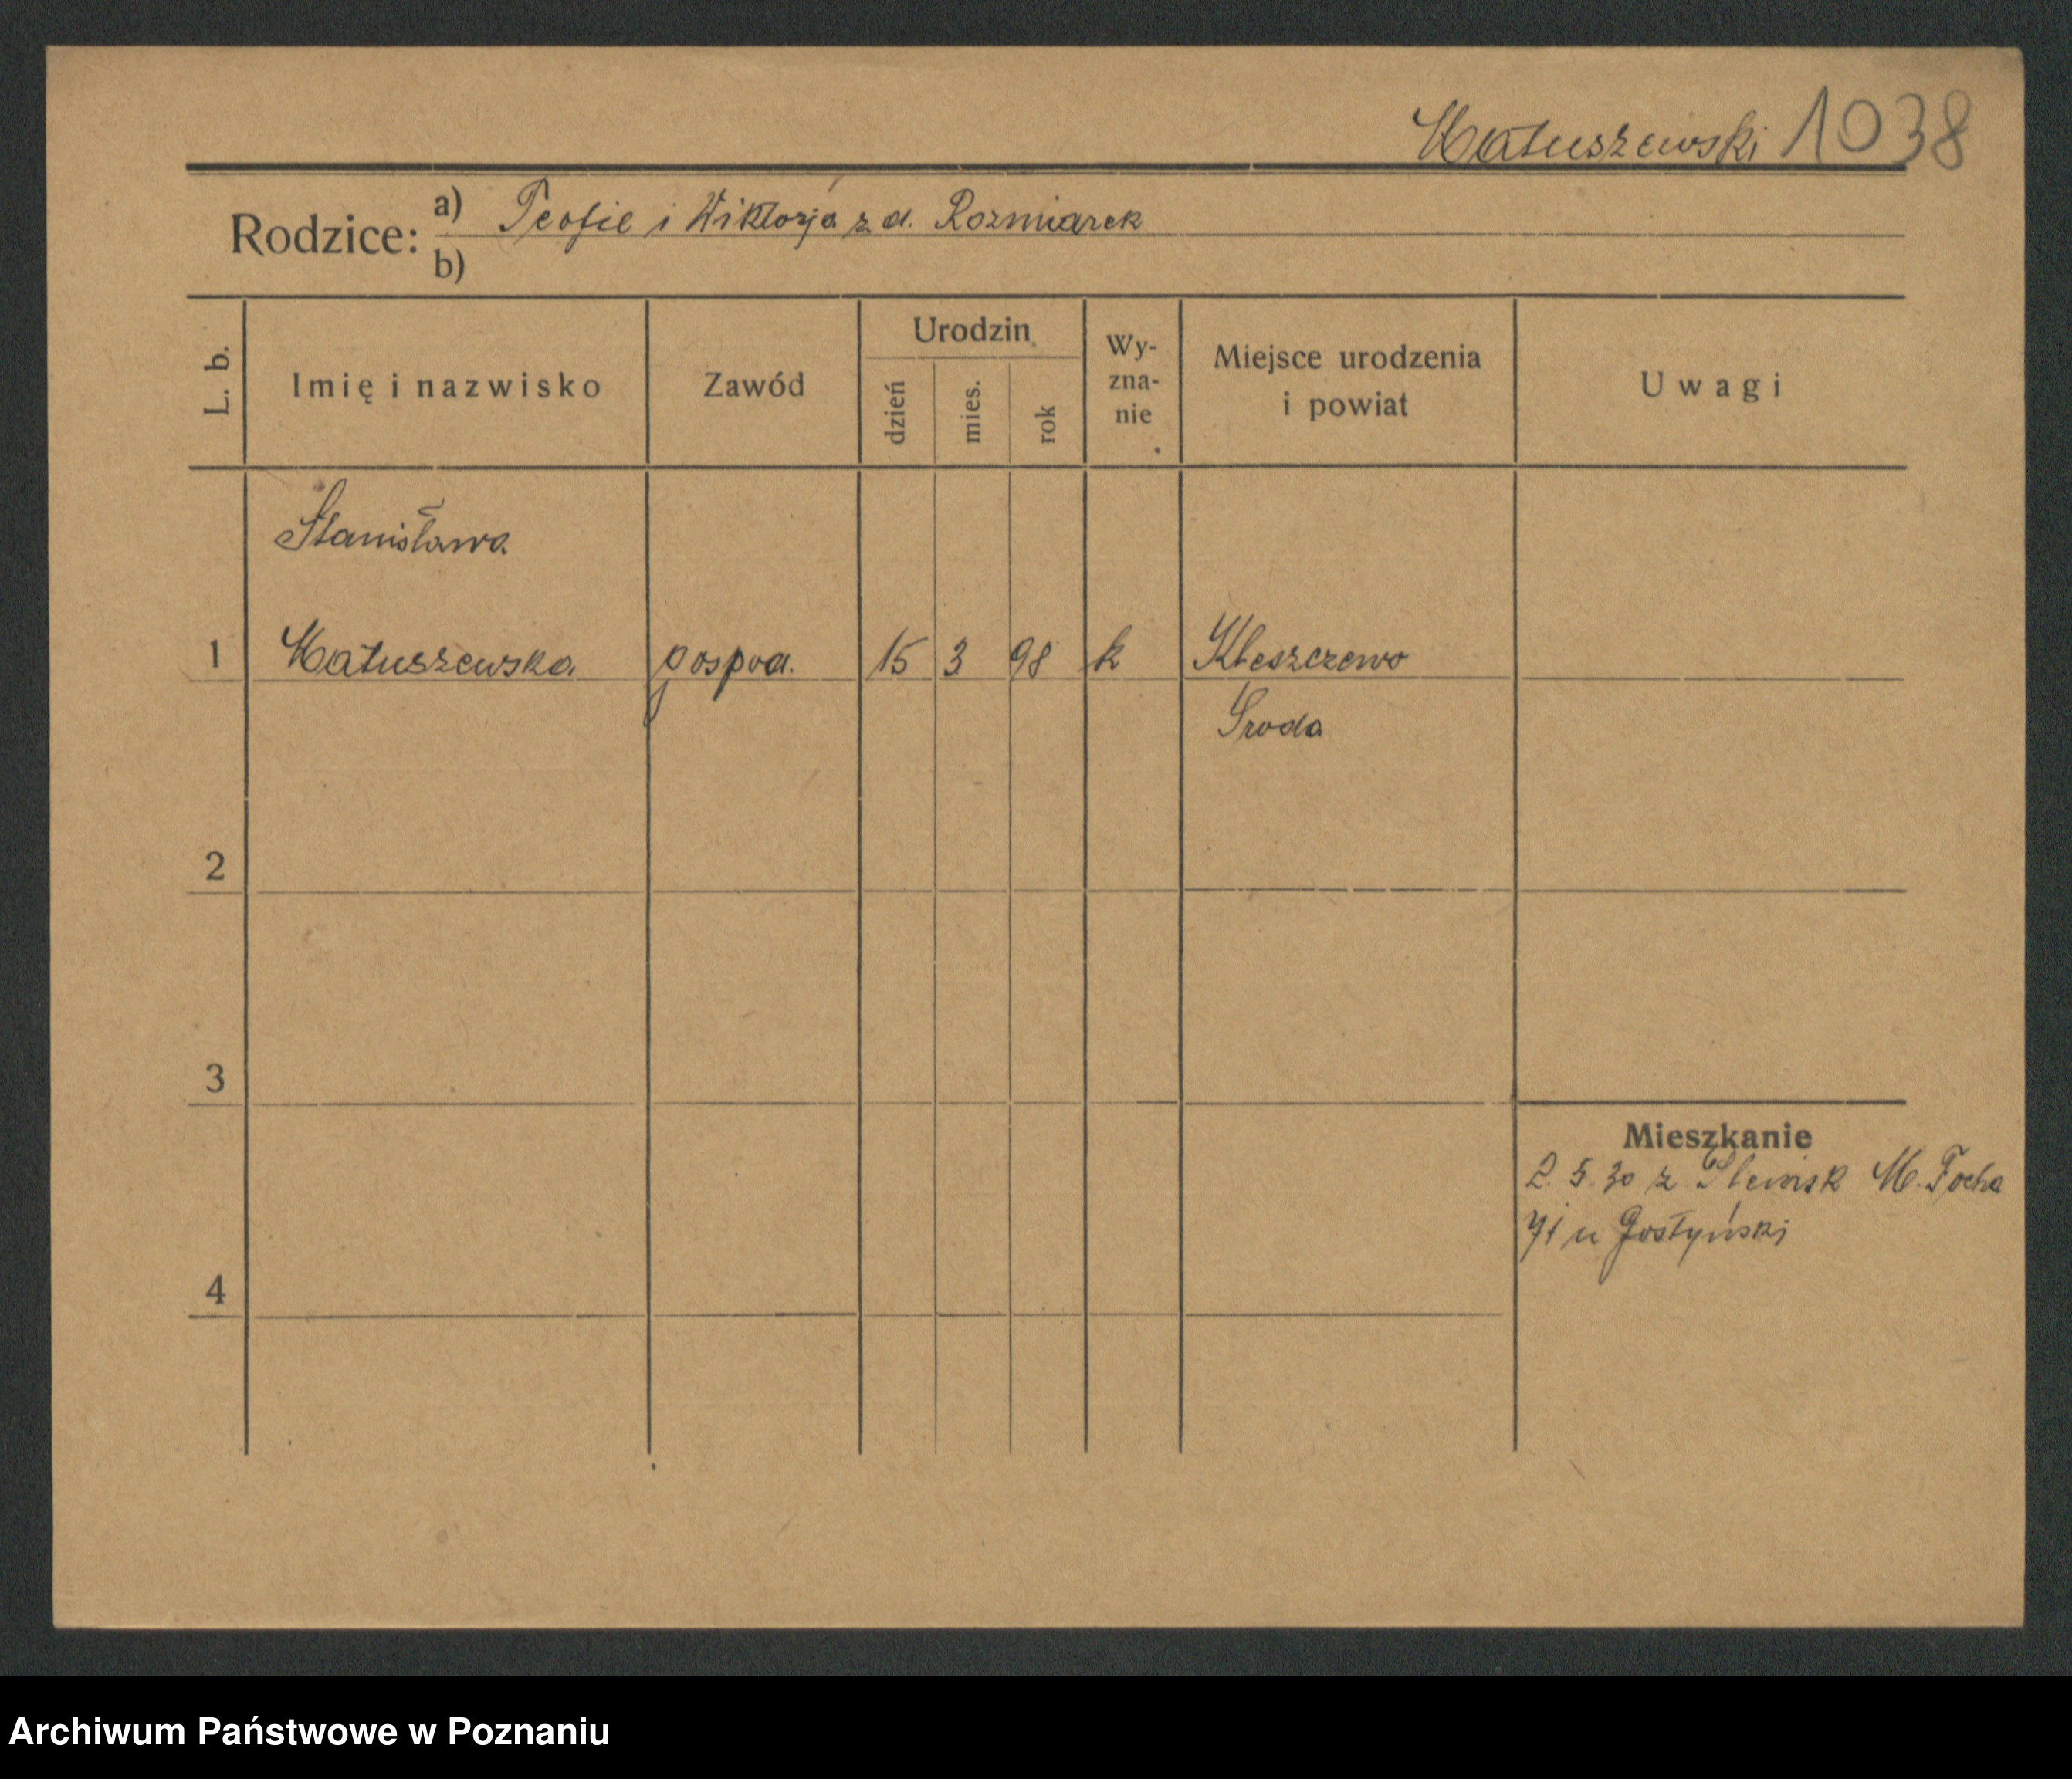 Matuszewski 1038
Rodzice: a) Teofil i Wiktorja z d. Rozmiarek
b)
L. b. Imię i nazwisko Zawód Urodzin dzień mies. rok Wy-zna-nie Miejsce urodzenia i powiat Uwagi
Stanisława
1 Matuszewska gospod. 15 3 98 k Kleszczewo
Sroda
2
3
Mieszkanie
2. 5. 30 z Plewisk M. Focha
71 u Gostyński
4
Archiwum Państwowe w Poznaniu